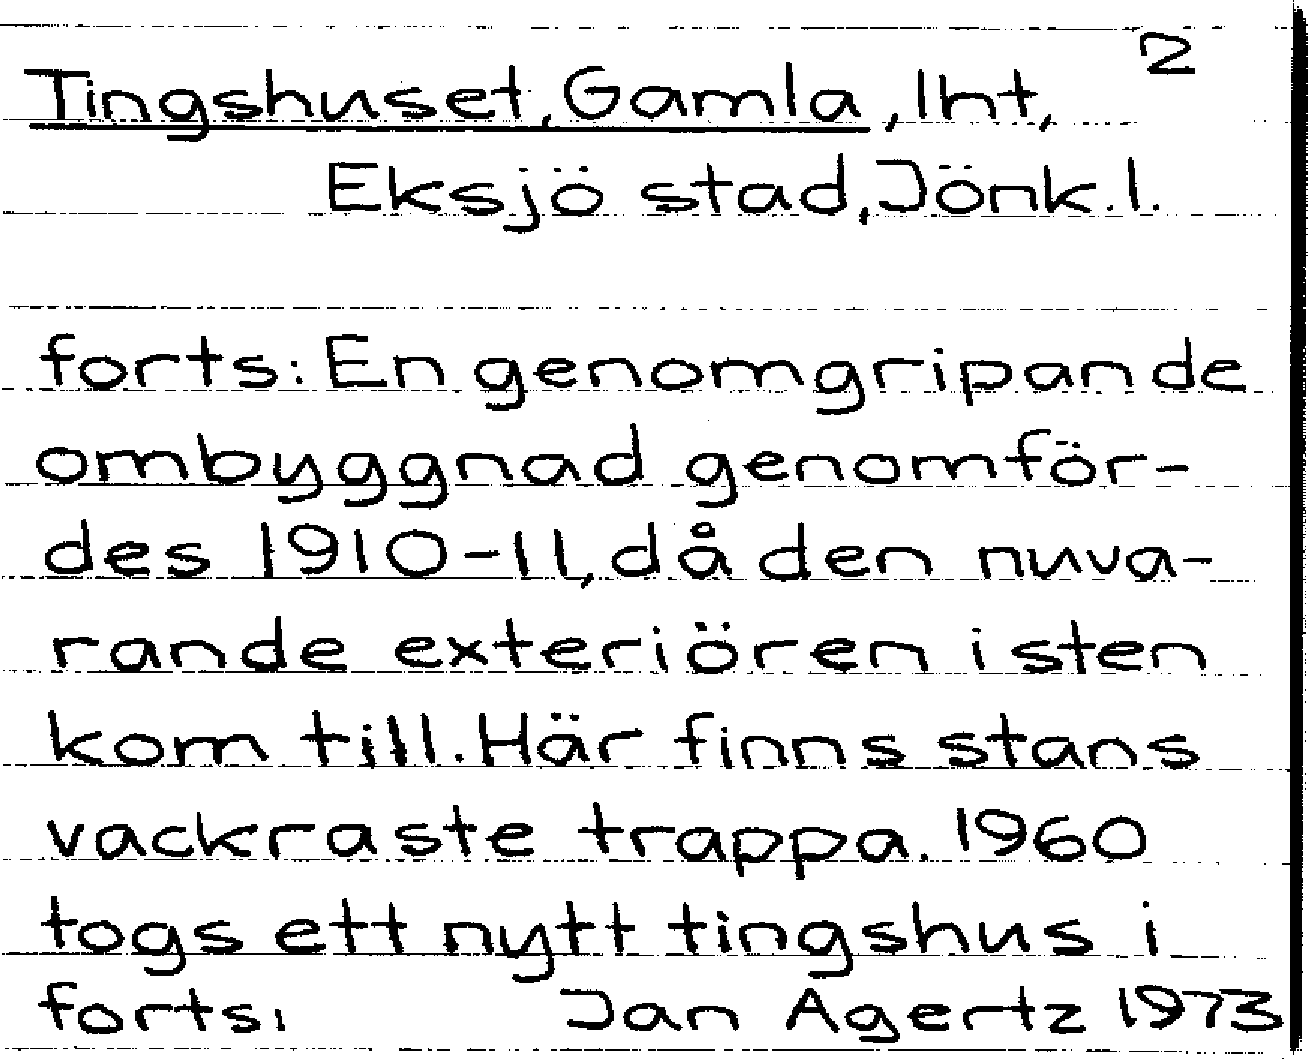 2
Tingshuset, Gamla, Int,
Eksjö stad, Jönk.l.
forts: En genomgripande
ombyggnad genomför-
des 1910-11, då den nuva-
rande exteriören i sten
kom till. Här finns stans
vackraste trappa. 1960
togs ett nytt tingshus i
forts: Jan Agertz 1973